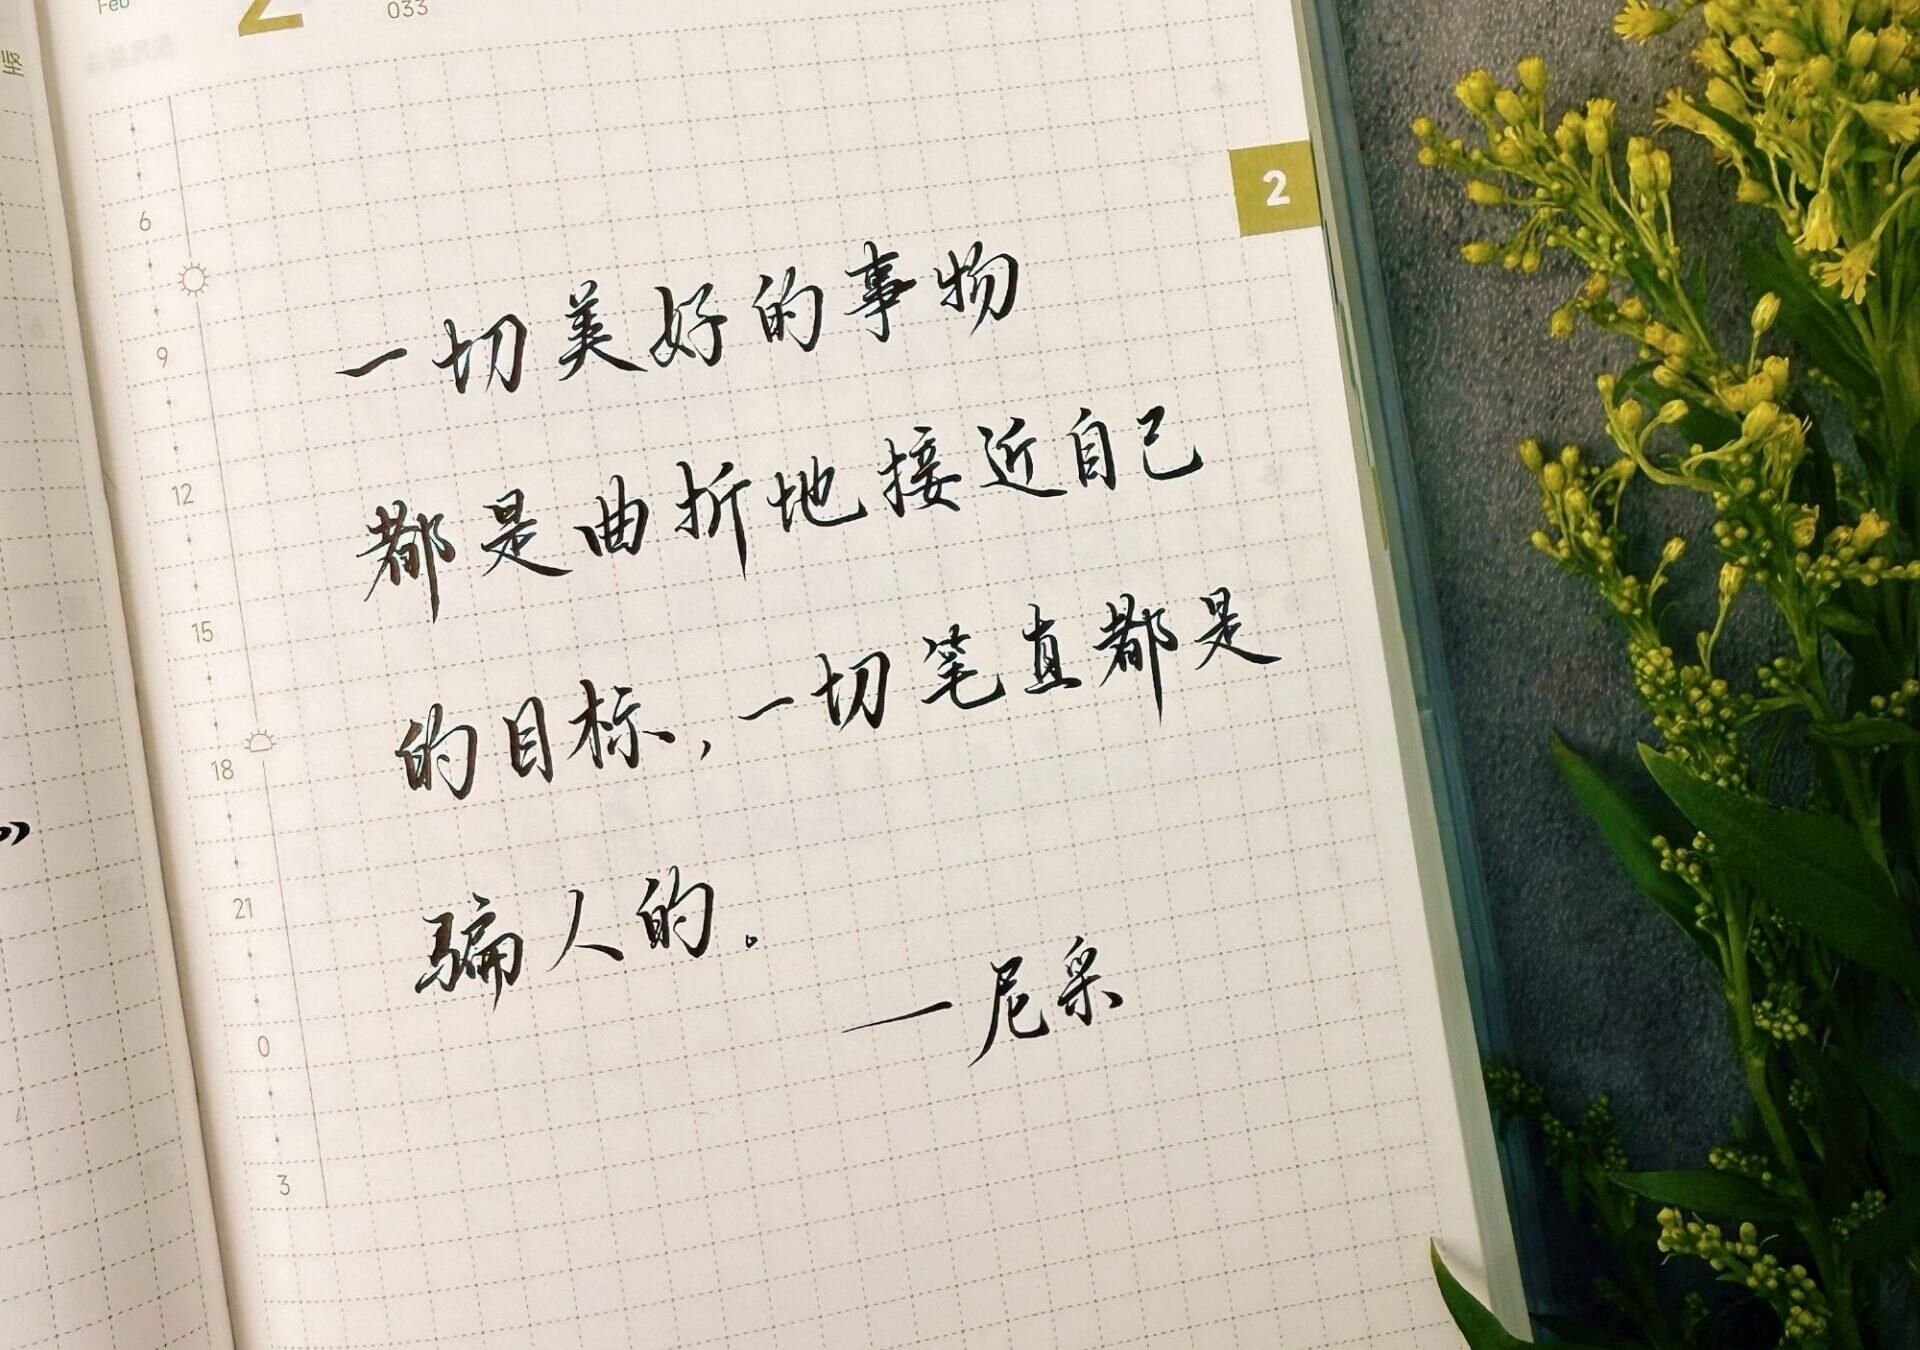 坚
Feb
2
033
2
6
9
12
15
18
21
0
3
一切美好的事物
都是曲折地接近自己
的目标，一切笔直都是
骗人的。
—尼采
”